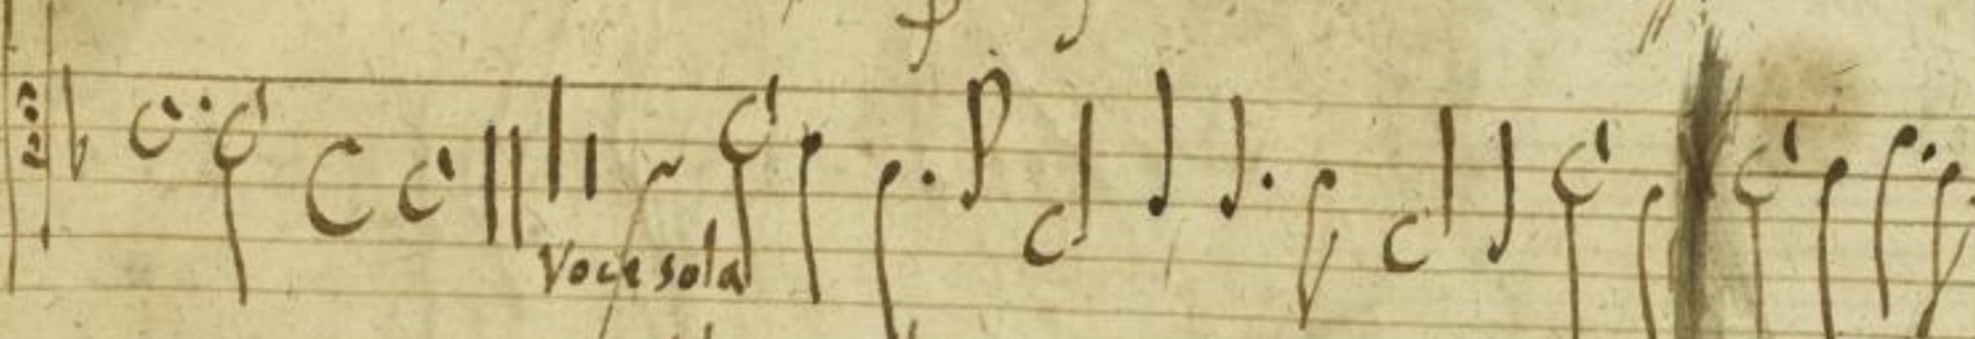 Voce sola